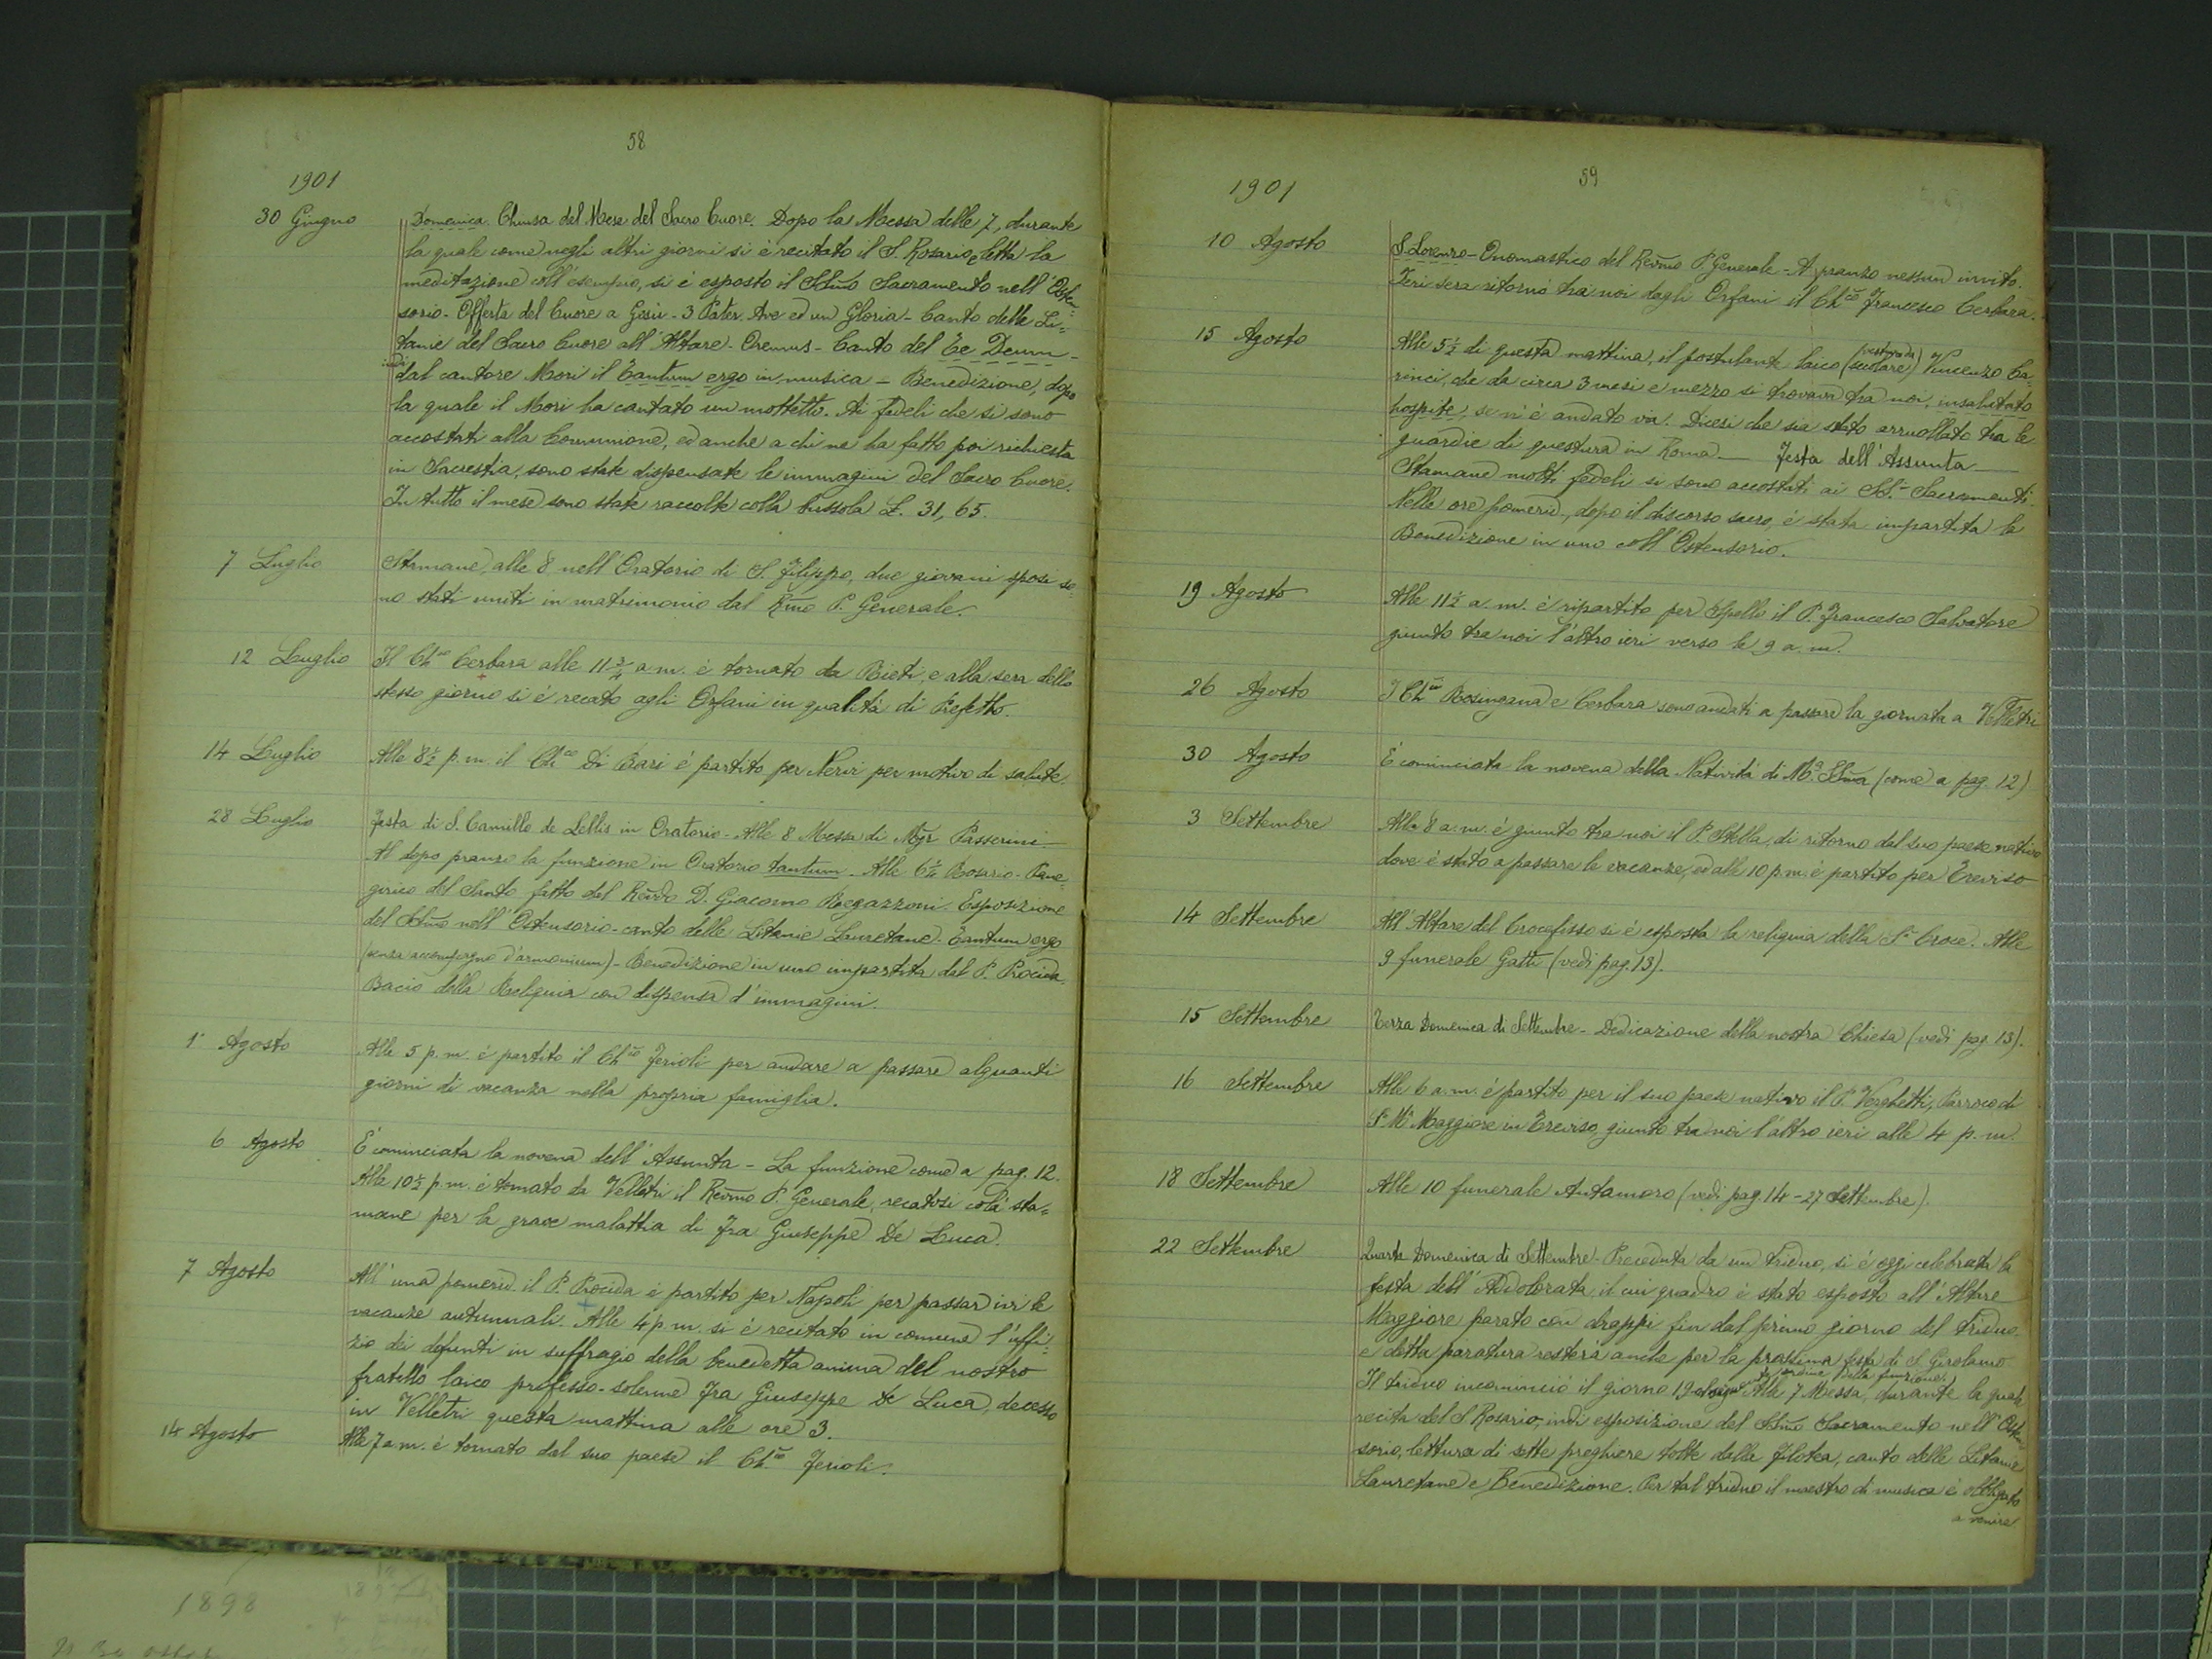 58
1901
30 Giugno Domenica. Chiusa del Mese del Sacro Cuore. Dopo la Messa delle 7, durante
la quale come negli altri giorni si è recitato il S. Rosario e letta la
meditazione coll'esempio, si è esposto il SSmo Sacramento nell'Osten=
sorio - Offerta del Cuore a Gesù - 3 Pater Ave ed un Gloria - Canto delle Li=
tanie del Sacro Cuore all'Altare - Oremus - Canto del Te Deum -
indi dal cantore Mori il Tantum ergo in musica - Benedizione, dopo
la quale il Mori ha cantato un mottetto. Ai fedeli che si sono
accostati alla Comunione, ed anche a chi ne ha fatto poi richiesta
in Sacrestia, sono state dispensate le immagini del Sacro Cuore.
In tutto il mese sono state raccolte colla bussola L. 31,65.
7 Luglio Stamane, alle 8 nell'Oratorio di S. Filippo, due giovani sposi so=
no stati uniti in matrimonio dal Rmo P. Generale.
12 Luglio Il Chco Cerbara alle 11 3/4 a.m. è tornato da Rieti, e alla sera dello
stesso giorno si è recato agli Orfani in qualità di Prefetto.
14 Luglio Alle 8 1/2 p.m. il Chco Di Bari è partito per Nervi per motivo di salute.
28 Luglio Festa di S. Camillo de Lellis in Oratorio - Alle 8 Messa di Mgr Passerini.
Al dopo pranzo la funzione in Oratorio tantum. Alle 6 1/4 Rosario - Pane=
girico del Santo fatto dal Revdo D. Giacomo Ragazzoni. Esposizione
del SSmo nell'Ostensorio - canto delle Litanie Lauretane - Tantum ergo
(senza accompagno d'armonium) - Benedizione in uno impartita dal P. Procida.
Bacio della Reliquia con dispensa d'immagini.
1° Agosto Alle 5 p.m. è partito il Chco Ferioli per andare a passare alquanti
giorni di vacanza nella propria famiglia.
6 Agosto È cominciata la novena dell'Assunta - La funzione come a pag. 12.
Alle 10 1/2 p.m. è tornato da Velletri il Revmo P. Generale, recatosi colà sta=
mane per la grave malattia di Fra Giuseppe De Luca.
7 Agosto All'una pomerid. il P. Procida è partito per Napoli per passar ivi le
vacanze autunnali. Alle 4 p.m. si è recitato in comune l'uffi=
zio dei defunti in suffragio della benedetta anima del nostro
fratello laico professo-solenne Fra Giuseppe De Luca, decesso
in Velletri questa mattina alle ore 3.
14 Agosto Alle 7 a.m. è tornato dal suo paese il Chco Ferioli.
59
1901
10 Agosto S. Lorenzo - Onomastico del Revmo P. Generale - A pranzo nessun invito.
Ieri sera ritornò tra noi dagli Orfani il Chco Francesco Cerbara.
15 Agosto Alle 5 1/2 di questa mattina, il postulante laico (secolare) Vincenzo Ca=
rinci, che da circa 3 mesi e mezzo si trovava tra noi, insalutato
hospite, se n'è andato via. Dicesi che sia stato arruollato tra le
guardie di questura in Roma. — Festa dell'Assunta —
Stamane molti fedeli si sono accostati ai SS.i Sacramenti.
Nelle ore pomerid., dopo il discorso sacro, è stata impartita la
Benedizione in uno coll'Ostensorio.
19 Agosto Alle 11 1/2 a.m. è ripartito per Spello il P. Francesco Salvatore
giunto tra noi l'altro ieri verso le 9 a.m.
26 Agosto I Chci e Cerbara sono andati a passare la giornata a Velletri
30 Agosto È cominciata la novena della Natività di Ma SSma (come a pag. 12)
3 Settembre Alle 8 a.m. è giunto tra noi il P. Stella, di ritorno dal suo paese nativo
dove è stato a passare le vacanze, ed alle 10 p.m. è partito per Treviso
14 Settembre All'Altare del Crocefisso si è esposta la reliquia della Sa Croce. Alle
9 funerale Gatti (vedi pag. 13).
15 Settembre Terza Domenica di Settembre - Dedicazione della nostra Chiesa (vedi pag. 13).
16 Settembre Alle 6 a.m. è partito per il suo paese nativo il P. Verghetti, Parroco di
Sa Ma Maggiore in Treviso, giunto tra noi l'altro ieri alle 4 p.m.
18 Settembre Alle 10 funerale Antamoro (vedi pag. 14 - 27 Settembre).
22 Settembre Quarta Domenica di Settembre - Preceduta da un triduo, si è oggi celebrata la
festa dell'Addolorata, il cui quadro è stato esposto all'Altare
Maggiore parato con drappi fin dal primo giorno del triduo,
e detta paratura resterà anche per la prossima festa di S. Girolamo
Il triduo incominciò il giorno 19 ordine della funzione: Alle 7 Messa, durante la quale
recita del S. Rosario, indi esposizione del SSmo Sacramento nell'Osten=
sorio, lettura di sette preghiere tolte dalla Filotea, canto delle Litanie
Lauretane e Benedizione. Per tal triduo il maestro di musica è obbligato
a venire
1898